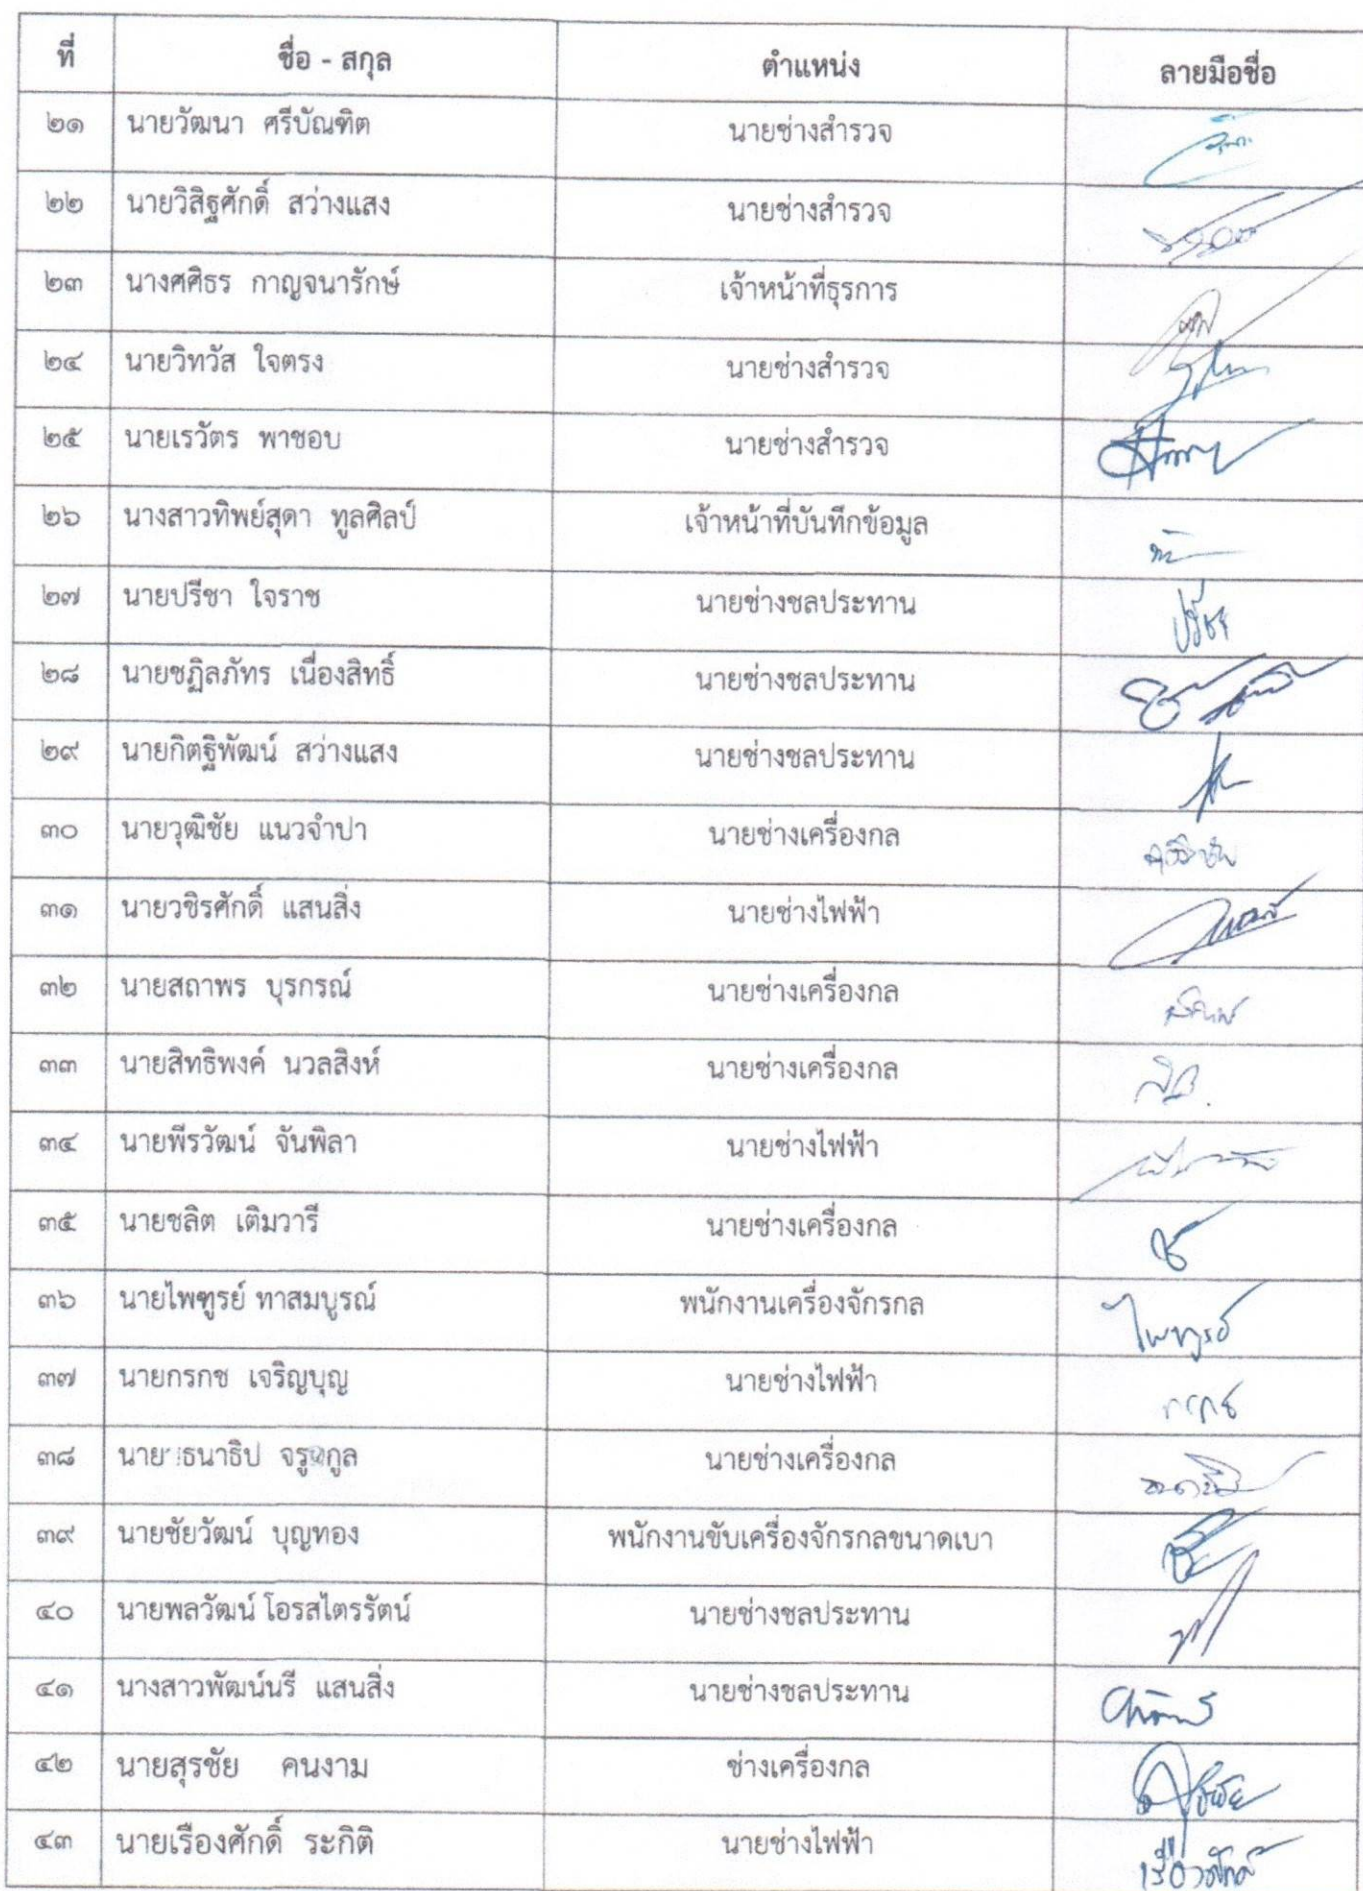 ที่ ชื่อ - สกุล ตำแหน่ง ลายมือชื่อ
๒๑ นายวัฒนา ศรีบัณฑิต นายช่างสำรวจ
๒๒ นายวิสิฐศักดิ์ สว่างแสง นายช่างสำรวจ
๒๓ นางศศิธร กาญจนารักษ์ เจ้าหน้าที่ธุรการ
๒๔ นายวิทวัส ใจตรง นายช่างสำรวจ
๒๕ นายเรวัตร พาชอบ นายช่างสำรวจ
๒๖ นางสาวทิพย์สุดา ทูลศิลป์ เจ้าหน้าที่บันทึกข้อมูล
๒๗ นายปรีชา ใจราช นายช่างชลประทาน ปรีชา
๒๘ นายชฎิลภัทร เนื่องสิทธิ์ นายช่างชลประทาน
๒๙ นายกิตฐิพัฒน์ สว่างแสง นายช่างชลประทาน
๓๐ นายวุฒิชัย แนวจำปา นายช่างเครื่องกล
๓๑ นายวชิรศักดิ์ แสนสิ่ง นายช่างไฟฟ้า
๓๒ นายสถาพร บุรกรณ์ นายช่างเครื่องกล
๓๓ นายสิทธิพงค์ นวลสิงห์ นายช่างเครื่องกล
๓๔ นายพีรวัฒน์ จันพิลา นายช่างไฟฟ้า
๓๕ นายชลิต เติมวารี นายช่างเครื่องกล
๓๖ นายไพฑูรย์ ทาสมบูรณ์ พนักงานเครื่องจักรกล ไพฑูรย์
๓๗ นายกรกช เจริญบุญ นายช่างไฟฟ้า กรกช
๓๘ นายธนาธิป นายช่างเครื่องกล
๓๙ นายชัยวัฒน์ บุญทอง พนักงานขับเครื่องจักรกลขนาดเบา
๔๐ นายพลวัฒน์ โอรสไตรรัตน์ นายช่างชลประทาน
๔๑ นางสาวพัฒน์นรี แสนสิ่ง นายช่างชลประทาน
๔๒ นายสุรชัย คนงาม ช่างเครื่องกล
๔๓ นายเรืองศักดิ์ ระกิติ นายช่างไฟฟ้า เรืองศักดิ์